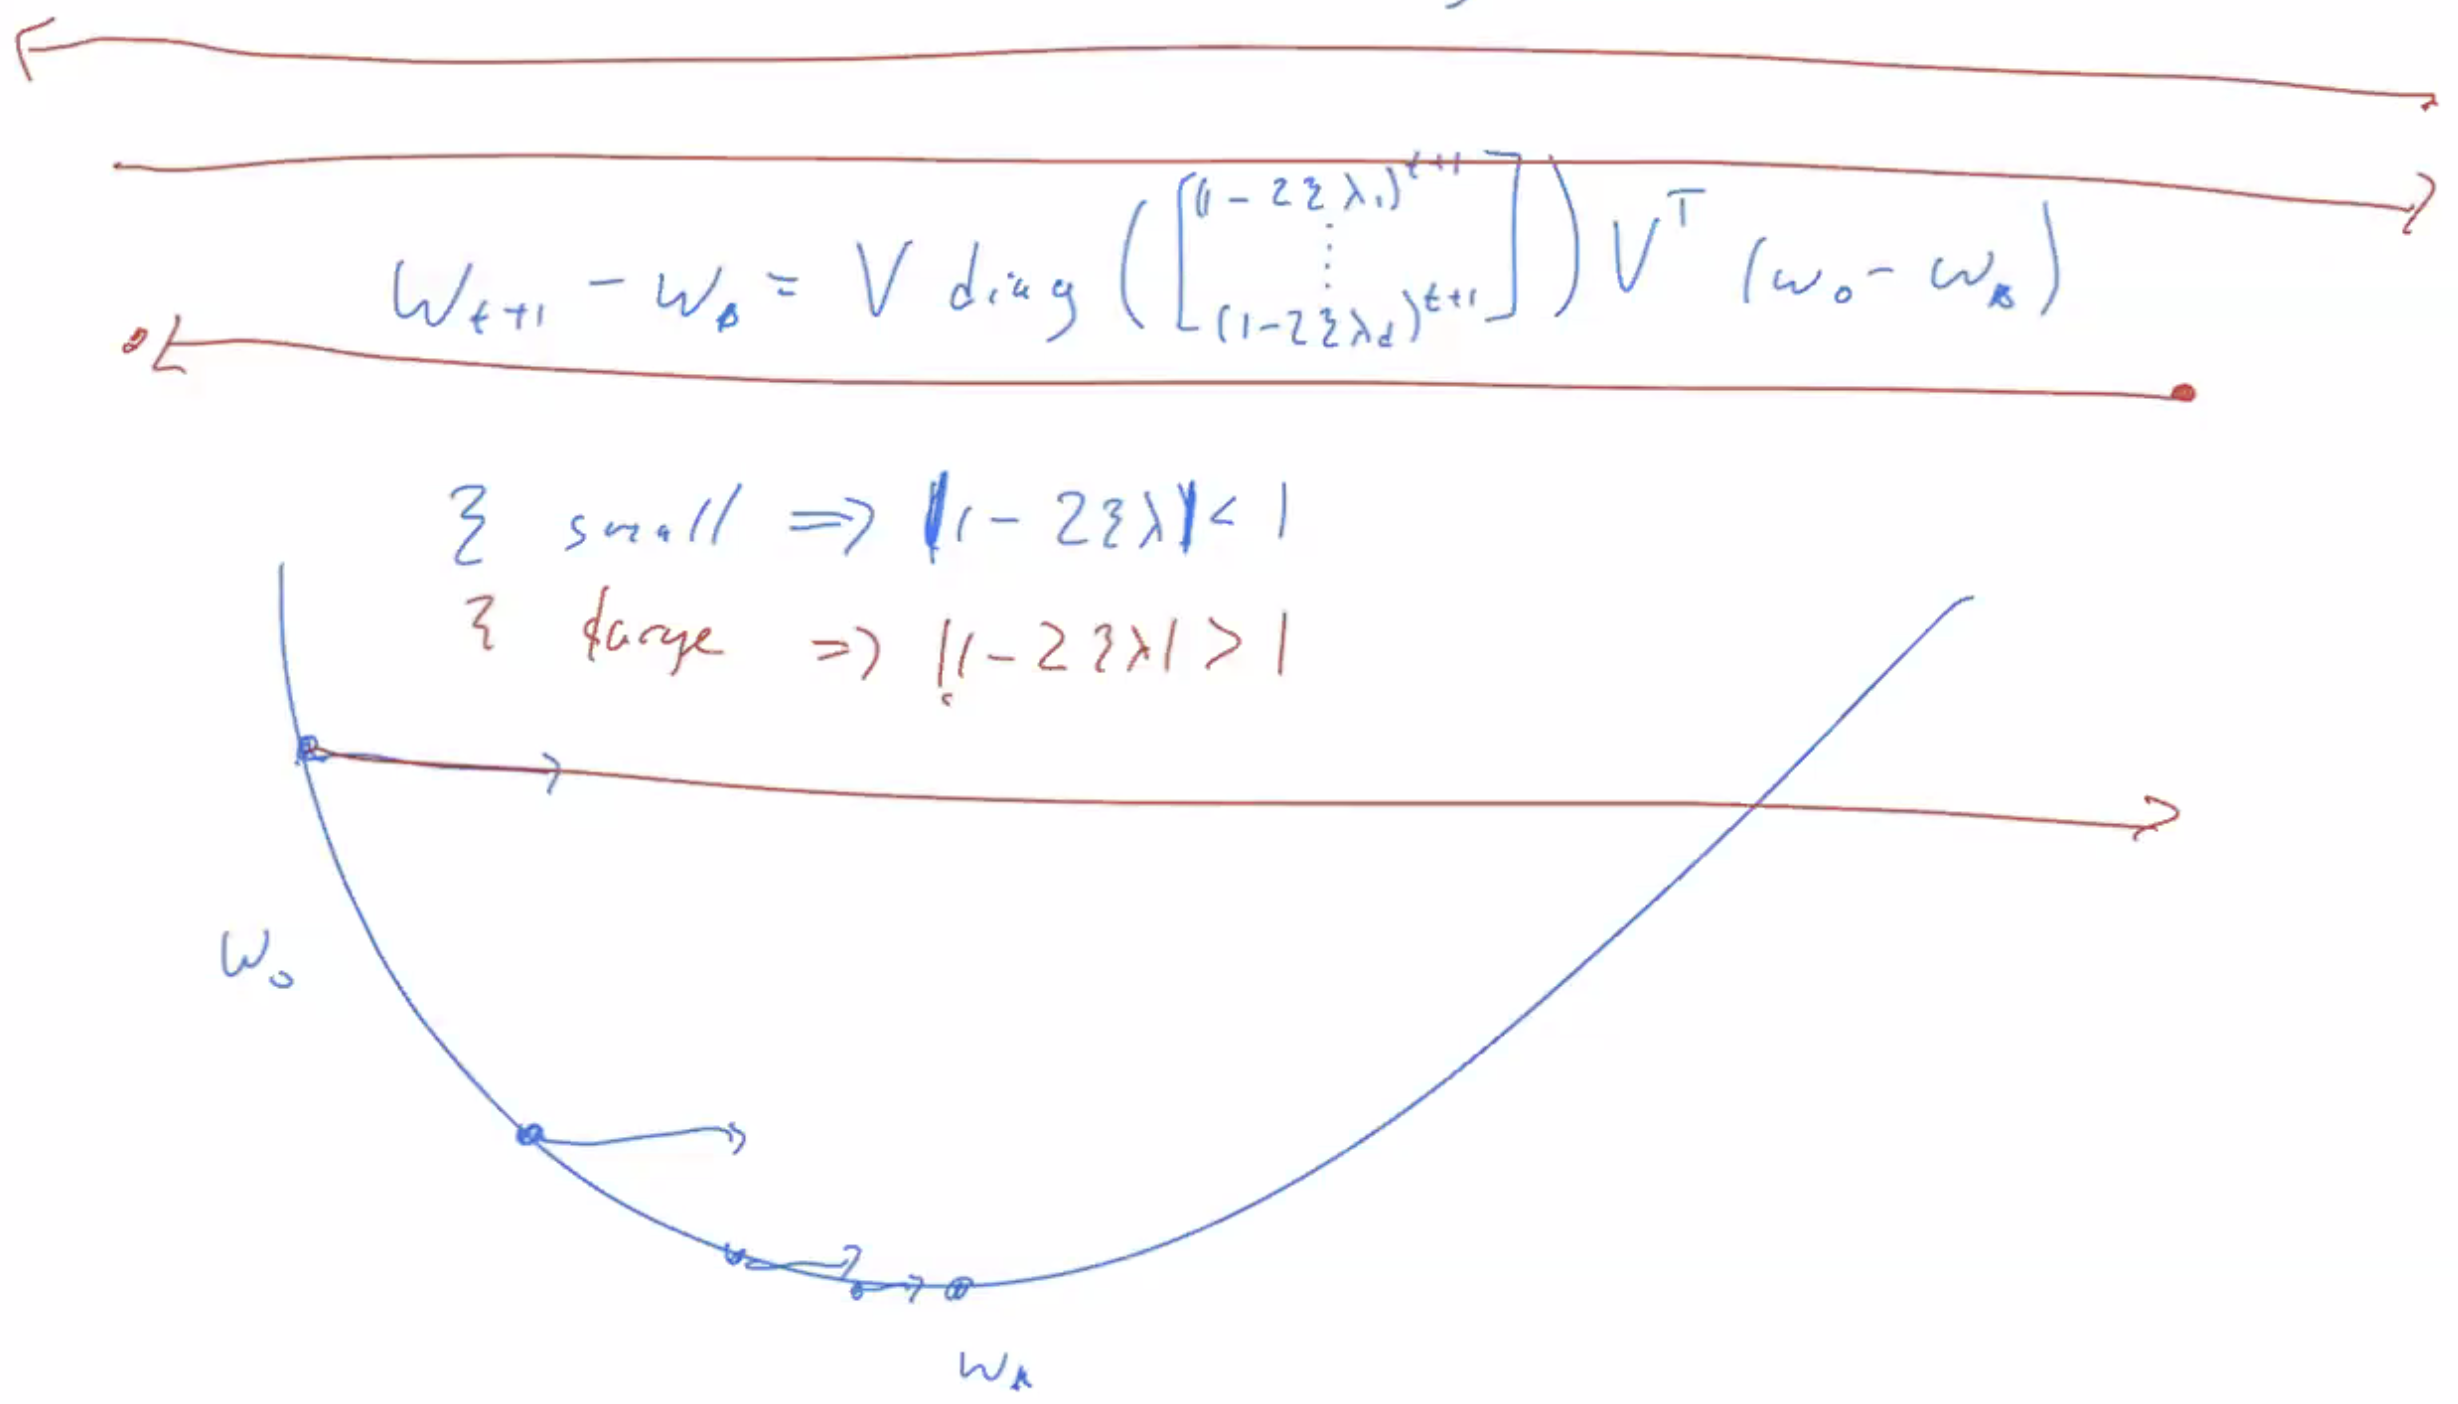 W_{t+1} - w_* = V diag ( [ (1 - 2 ξ λ_1)^{t+1} ⋮ (1 - 2 ξ λ_d)^{t+1} ] ) V^T (w_0 - w_*)
ξ small ⇒ |1 - 2 ξ λ| < 1
ξ large ⇒ |1 - 2 ξ λ| > 1
W_0
w_*